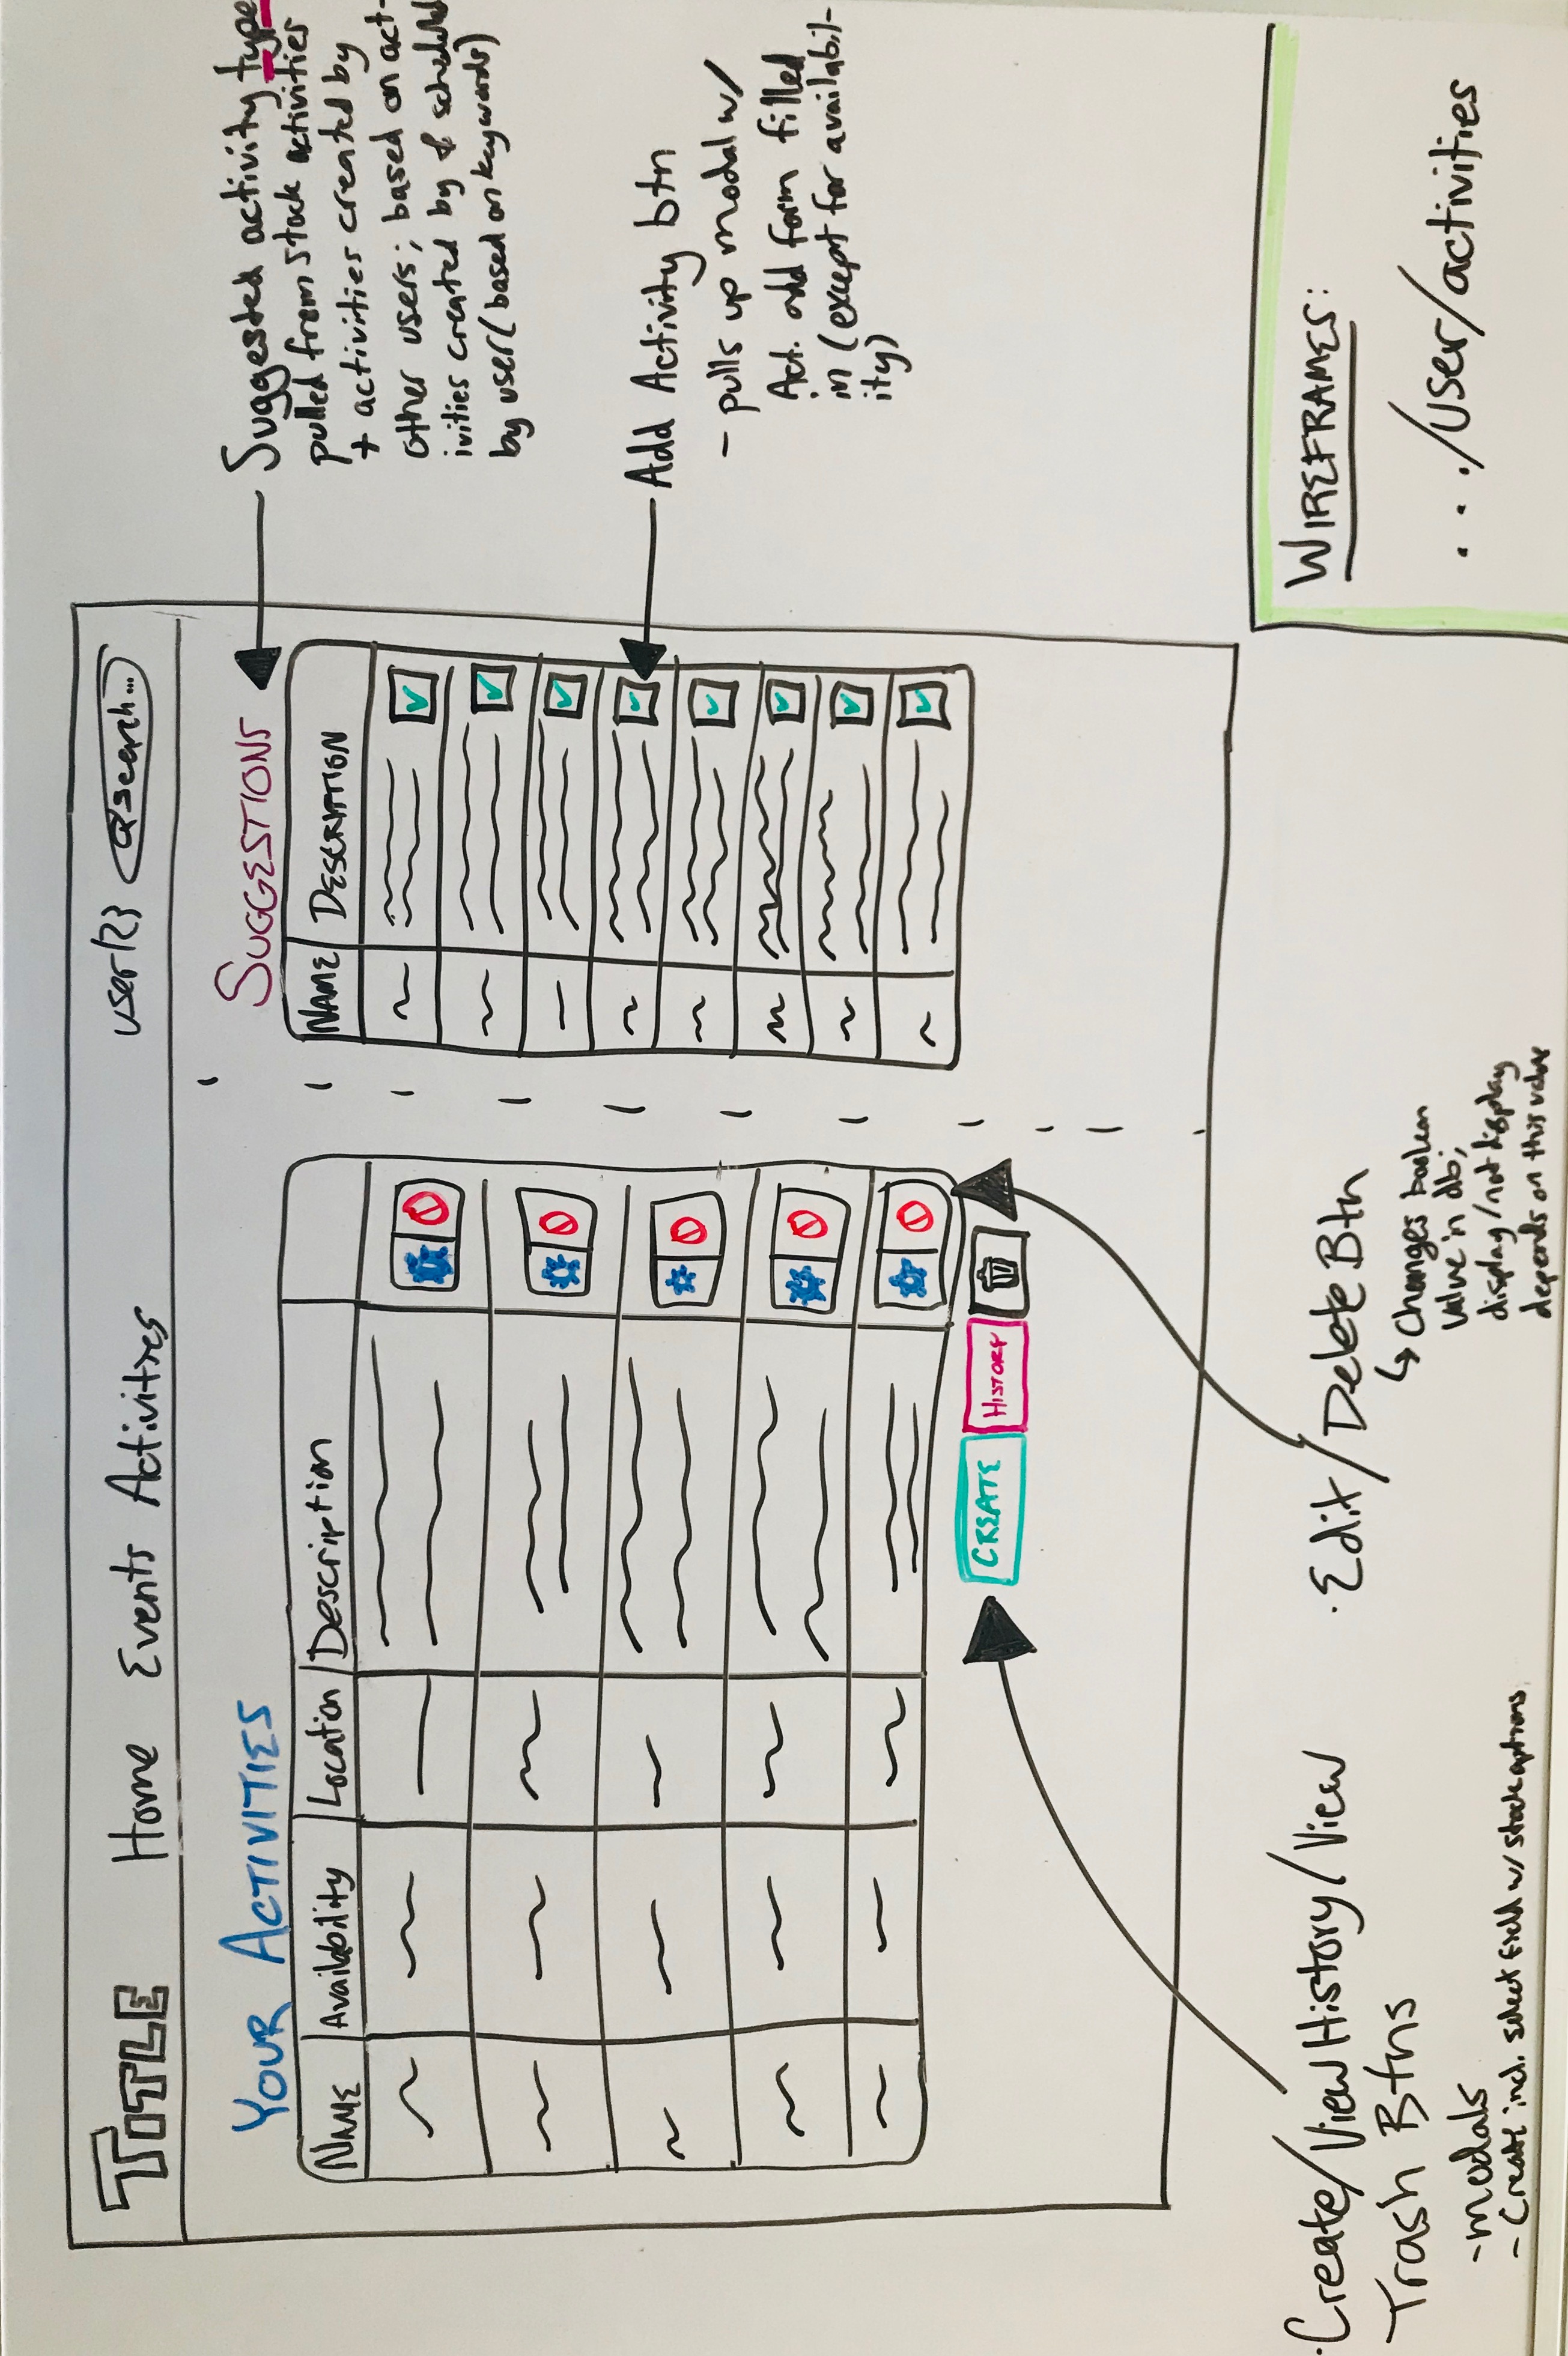 TITLE Home Events Activities user123 search...
YOUR ACTIVITIES
NAME Availability Location Description
CREATE HISTORY
SUGGESTIONS
NAME DESCRIPTION
Suggested activity type
pulled from stock activities
+ activities created by
other users; based on act-
ivities created by & scheduled
by user (based on keywords)
Add Activity btn
- pulls up modal w/
Act. add form filled
in (except for availabil-
ity)
·Create/View History/View
Trash Btns
- modals
- Create incl. select field w/ stock options
·Edit/Delete Btn
↳ Changes boolean
value in db;
display/not display
depends on this value
WIREFRAMES:
.../user/activities